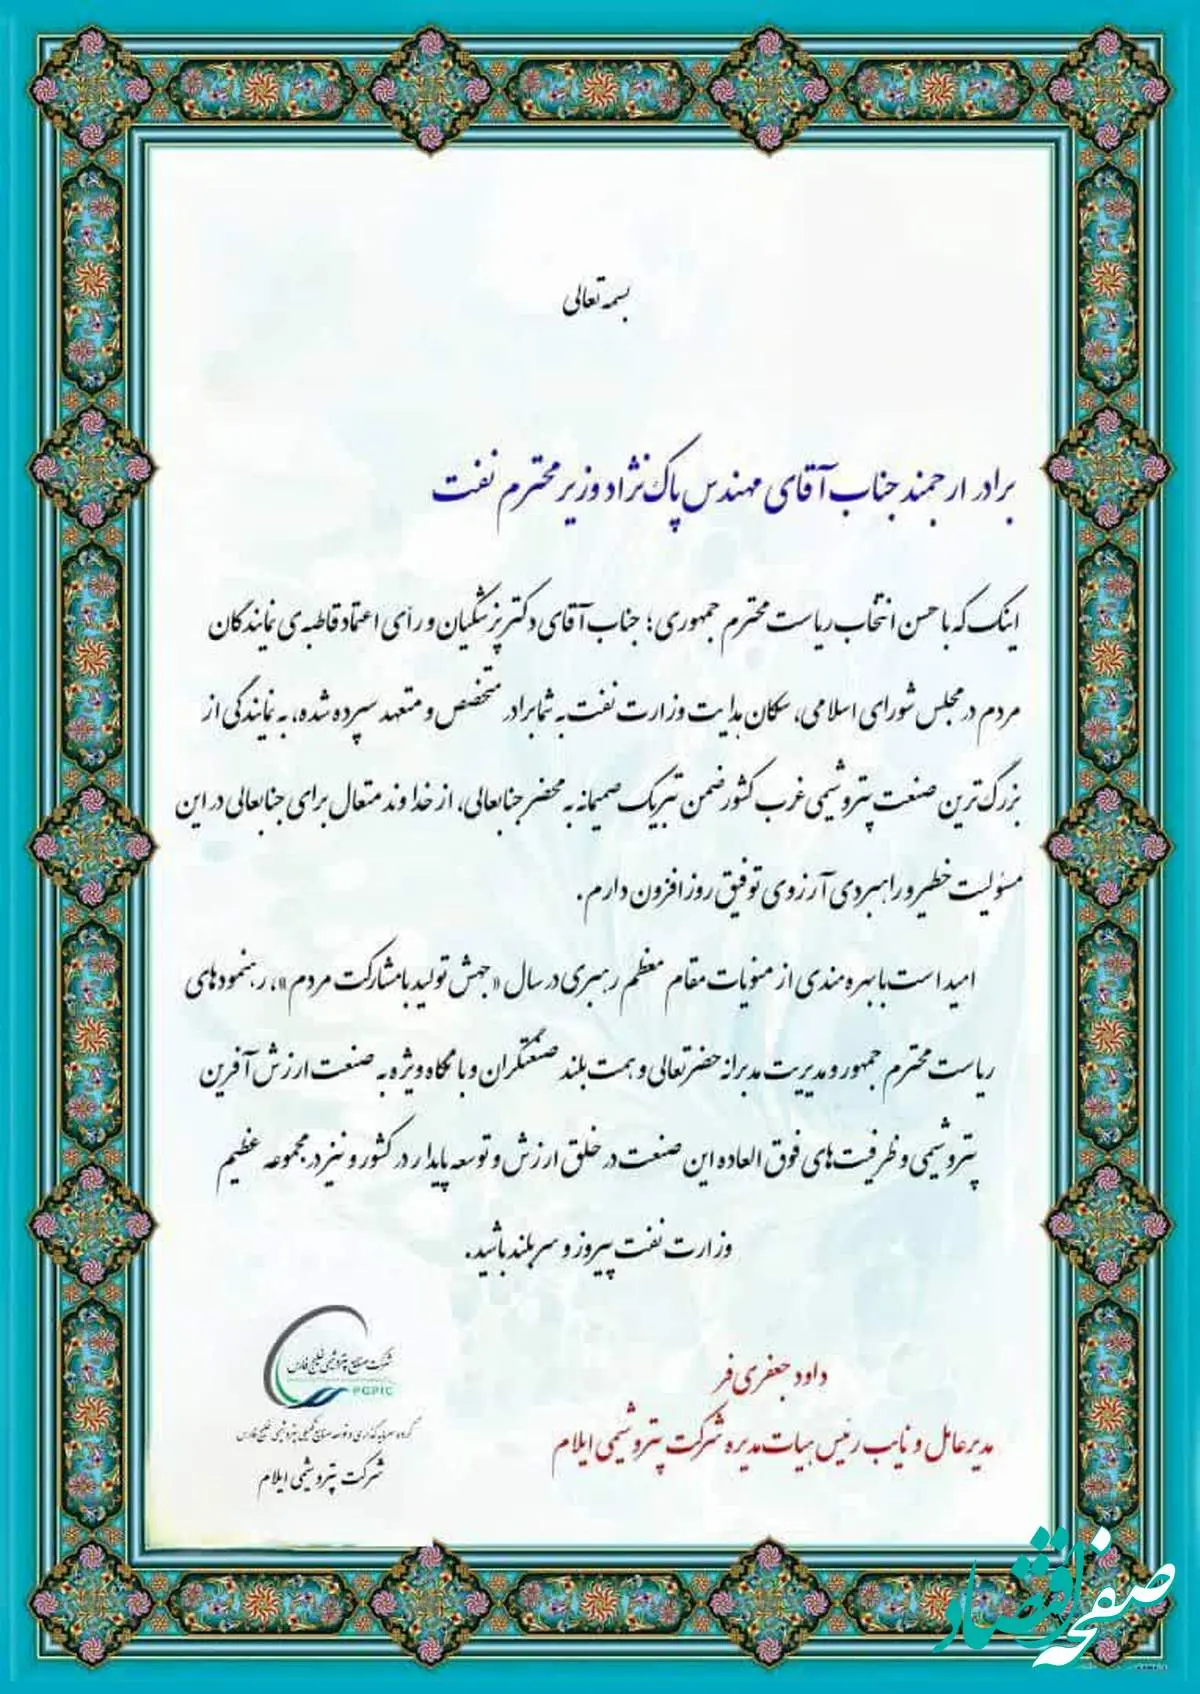 بسمه تعالی
برادر ارجمند جناب آقای مهندس پاک‌نژاد وزیر محترم نفت
اینک که با حسن انتخاب ریاست محترم جمهوری؛ جناب آقای دکتر پزشکیان و رأی اعتماد قاطبه‌ی نمایندگان
مردم در مجلس شورای اسلامی، سکان هدایت وزارت نفت به شما برادر متخصص و متعهد سپرده شده، به نمایندگی از
بزرگ‌ترین صنعت پتروشیمی غرب کشور ضمن تبریک صمیمانه به محضر جنابعالی، از خداوند متعال برای جنابعالی در این
مسئولیت خطیر و راهبردی آرزوی توفیق روزافزون دارم.
امید است با بهره مندی از منویات مقام معظم رهبری در سال «جهش تولید با مشارکت مردم»، رهنمودهای
ریاست محترم جمهور و مدیریت مدبرانه حضرتعالی و همت بلند صنعتگران و با نگاه ویژه به صنعت ارزش آفرین
پتروشیمی و ظرفیت‌های فوق العاده این صنعت در خلق ارزش و توسعه پایدار در کشور و نیز در مجموعه عظیم
وزارت نفت پیروز و سربلند باشید.
داود جعفری‌فر
مدیرعامل و نایب رئیس هیات مدیره شرکت پتروشیمی ایلام
شرکت صنایع پتروشیمی خلیج فارس
PGPIC
گروه سرمایه‌گذاری و توسعه صنایع تکمیلی پتروشیمی خلیج فارس
شرکت پتروشیمی ایلام
صفحه اقتصاد